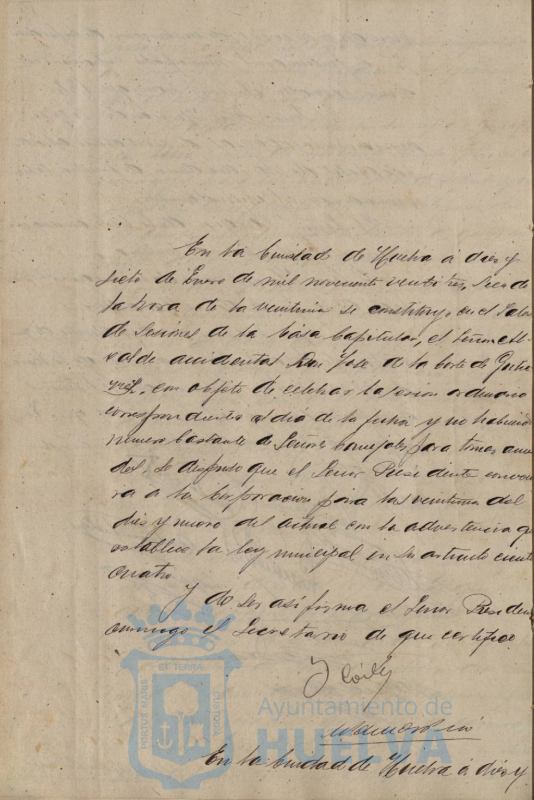 En la Ciudad de Huelva á diez y
siete de Enero de mil novecientos veintitres, siendo
la hora de la veintiuna se constituyo en el Salon
de Sesiones de la Casa Capitular, el Señor Al-
calde accidental Don Jose de la Corte de Gutie
rrez, con objeto de celebrar la sesion ordinaria
correspondiente al dia de la fecha y no habiendo
número bastante de Señores Concejales para tomar acuer
dos se dispuso que el Señor Presidente convoca
ra a la Corporacion para las veintiuna del
diez y nueve del actual con la advertencia que
establece la ley municipal en su articulo ciento
cuatro.
Y de ser asi firma el Señor Presidente
conmigo el Secretario de que certifico.
PORTUS MARIS
ET TERRÆ
CUSTODIA
Ayuntamiento de
HUELVA
En la Ciudad de Huelva á diez y